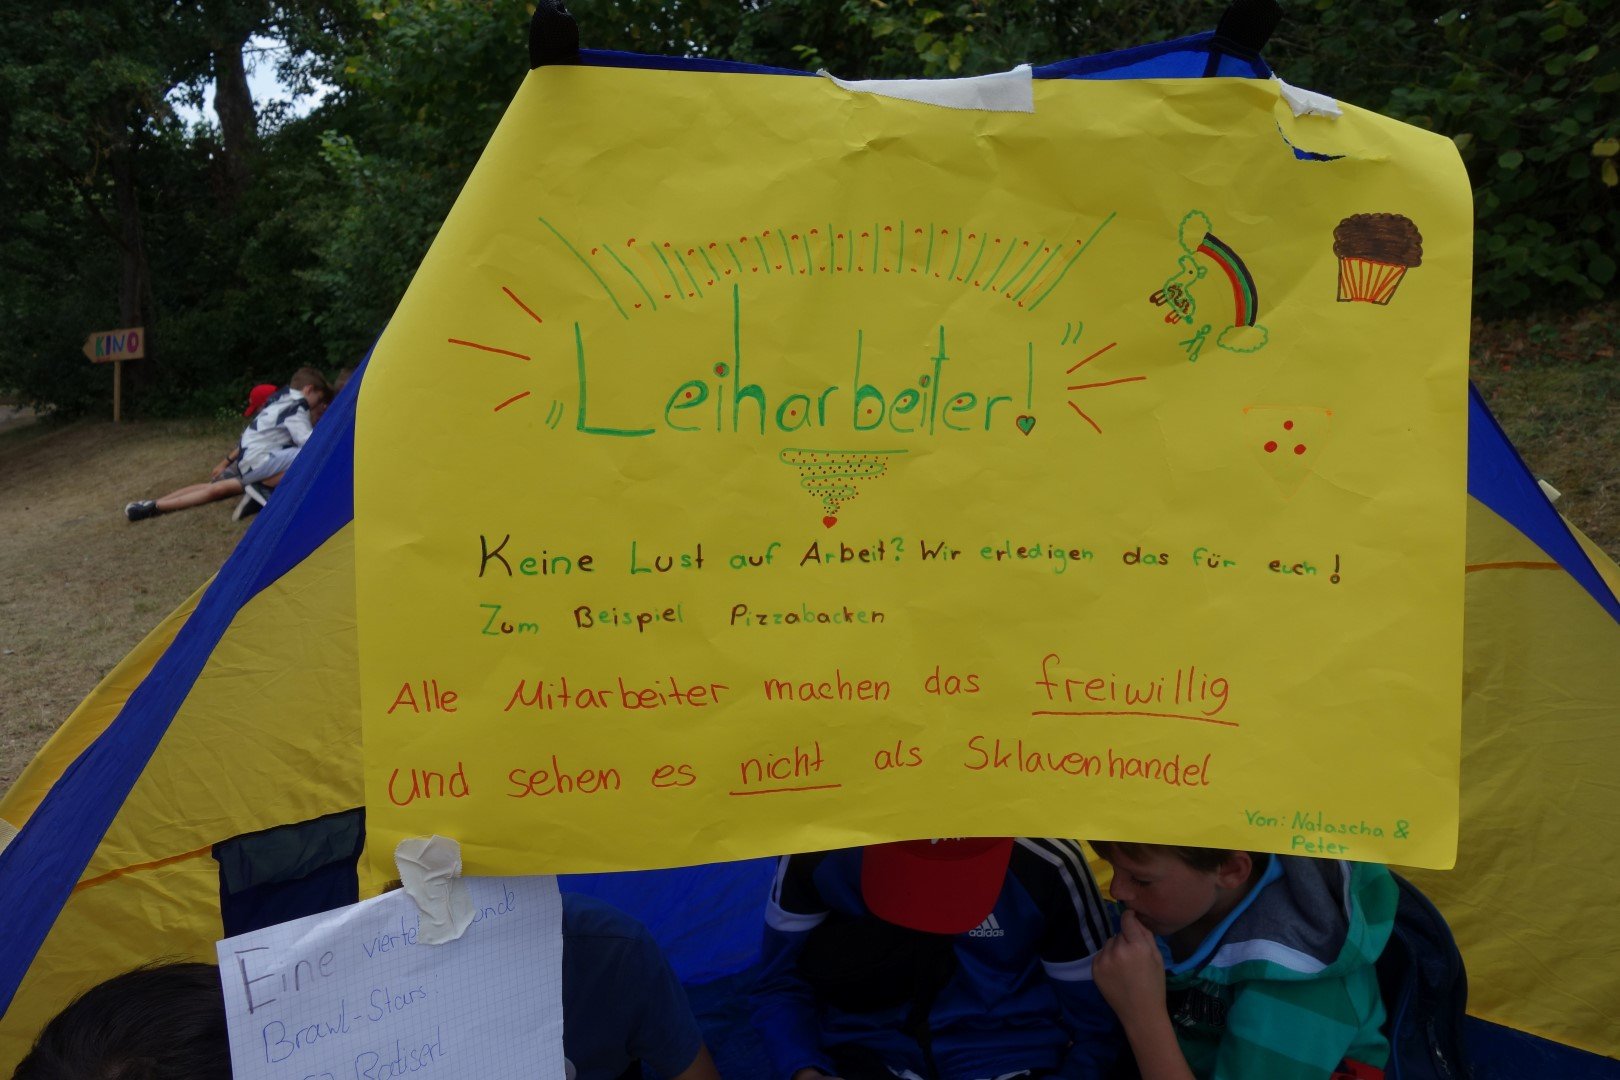 KINO
Leiharbeiter!
Keine Lust auf Arbeit? Wir erledigen das für euch!
Zum Beispiel Pizzabacken
Alle Mitarbeiter machen das freiwillig
und sehen es nicht als Sklavenhandel
Von: Natascha &
Peter
adidas
Eine
Brawl-Stars: